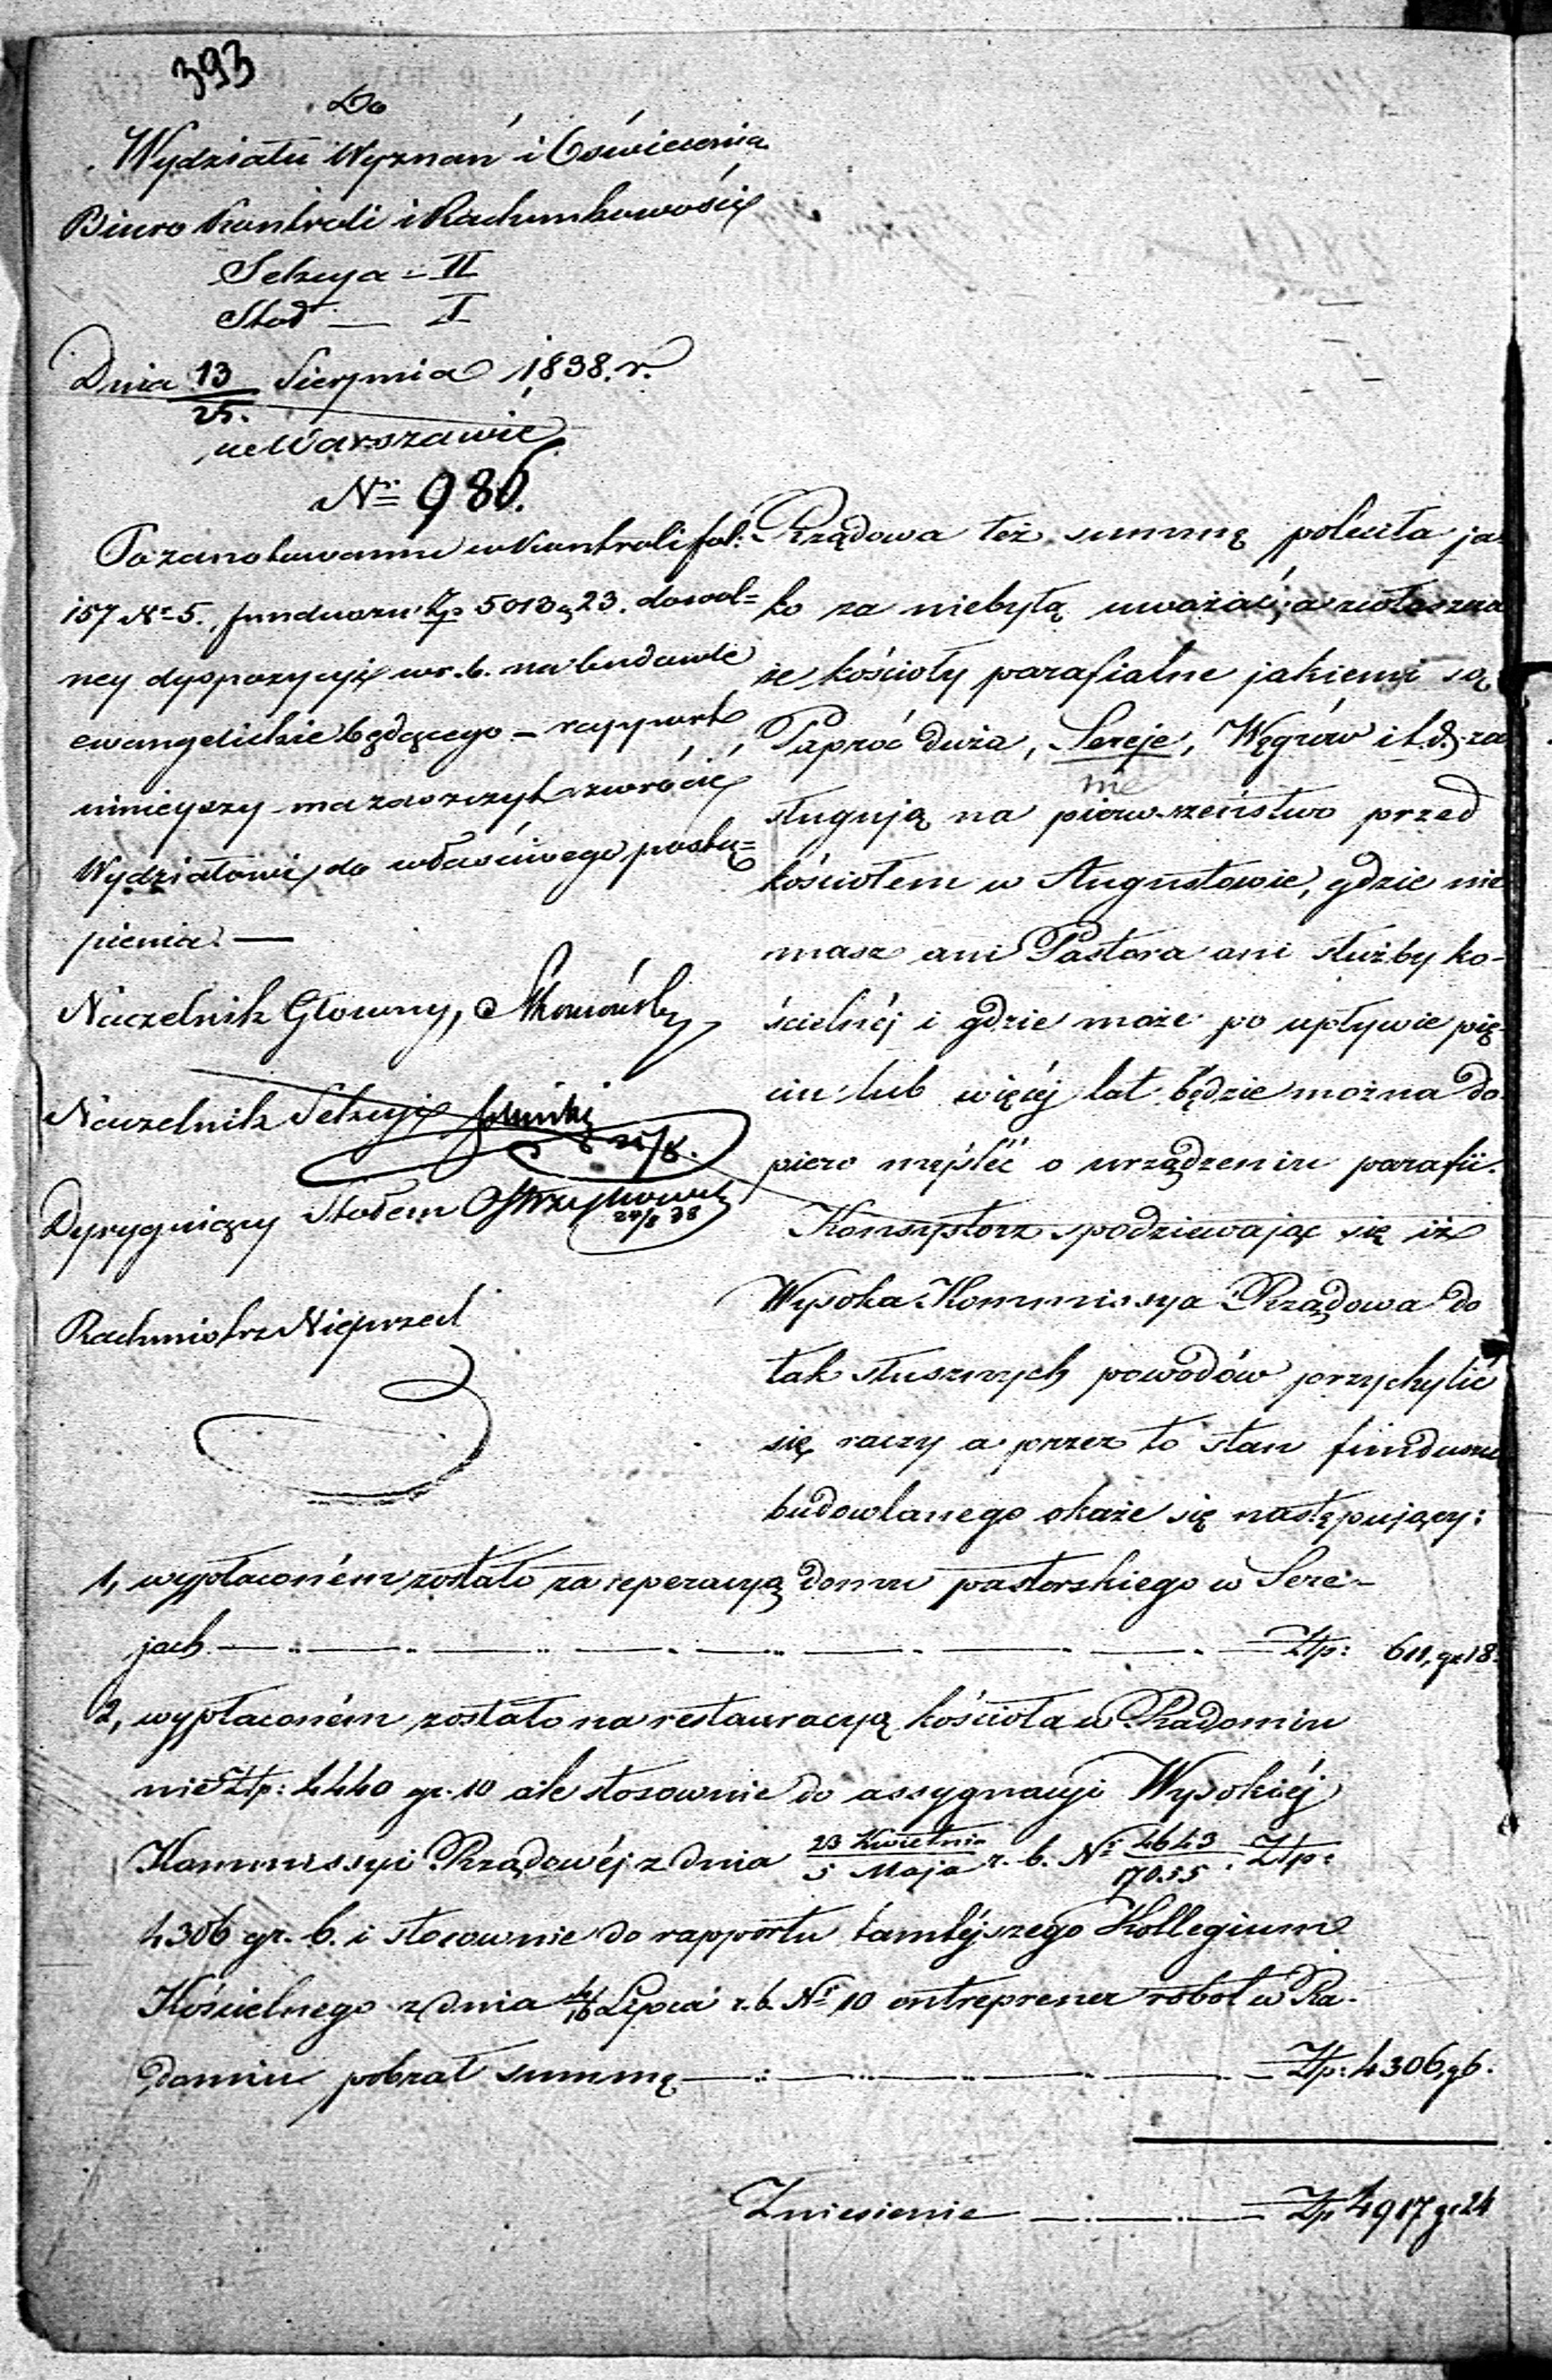 393
Do
Wydziału Wyznań i Oświecenia
Biuro Kontroli i Rachunkowości
Sekcya - II
Stoł — I
Dnia 13/25. Sierpnia 1838. r.
w Warszawie
Nr 986.
Po zanotowaniu w Kontroli fol:
157 Nr 5. funduszu Złp 5013 g 23. dowol=
ney dyspozycyi w r. b. na budowle
ewangelickie będącego – rapport
ninieyszy ma zaszczyt zwrócić
Wydziałowi do właściwego postą=
pienia. —
Naczelnik Głowny,
Naczelnik Sekcyi
25/8.
Dyryguiący Stołem
24/8 38
Rachmistrz Nieprzed
Rządowa też summę poleciła ja-
ko za niebyłą uważać, a zwłaszcza
że kościoły parafialne jakiemi są
Paproć duża, Sereje, Węgrów i t. d. za
nie
sługują na pierwszeństwo przed
kościołem w Augustowie, gdzie nie
masz ani Pastora ani służby ko-
ścielnéj i gdzie może po upływie pię-
ciu lub więcéj lat będzie można do
piero myśleć o urządzeniu parafii.
Konsystorz spodziewając się iż
Wysoka Kommissya Rządowa do
tak słusznych powodów przychylić
się raczy a przez to stan funduszu
budowlanego okaże się następujący:
1, wypłaconém zostało za reperacyą domu pastorskiego w Sere-
jach — Złp: 611, gr 18.
2, wypłaconém zostało na restauracyą kościoła w Radomiu
nie Złp: 4440 gr. 10 ale stosownie do assygnacyi Wysokiéj
Kommissyi Rządowéj z dnia 23 Kwietnia/5 Maja r. b. Nr 4643/17055. Złp:
4306 gr. 6. i stosownie do rapportu tamtéjszego Kollegium
Kościelnego z dnia Lipca r. b. Nr 10 entreprener robot w Ra-
domiu pobrał summę — Złp: 4306, g 6.
Zniesienie — Złp 4917 gr 24